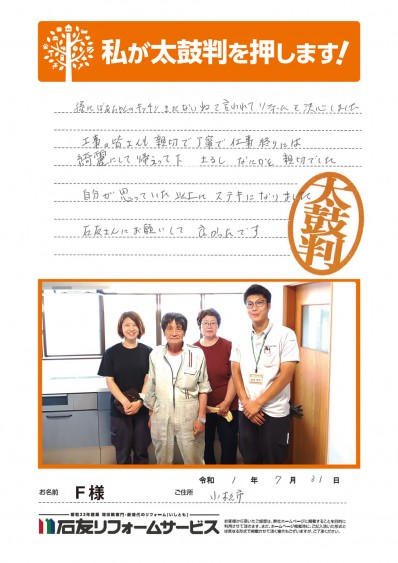 私が太鼓判を押します!
キッチン
言われてリホームを決心しました
工事の皆さんも親切で丁寧で仕事終りには
綺麗にして帰えって下さるし なにかと親切でした
自分が思っていた以上に ステキになりました
石友さんにお願いして 良かったです
太鼓判
令和 1 年 7 月 31 日
お名前 F様 ご住所 小松市
昭和23年建築 増改築専門・新時代のリフォーム「いしとも」
石友リフォームサービス